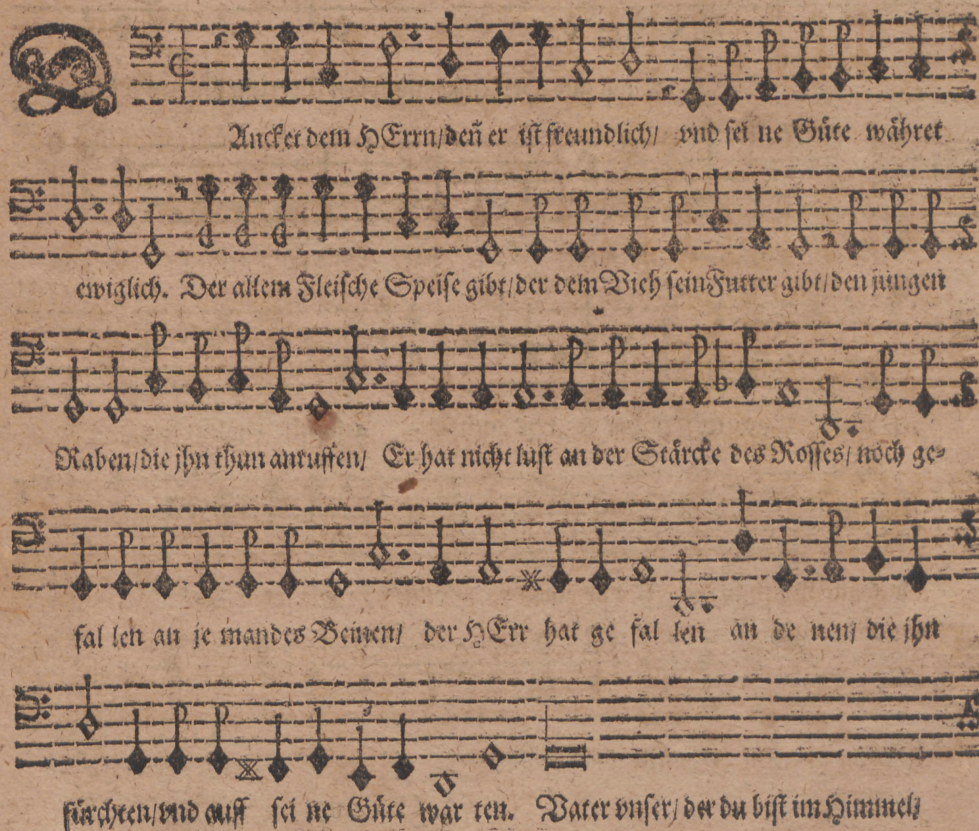 DAncket dem HErrn/deñ er ist freundlich/ vnd sei ne Güte währet
ewiglich. Der allem Fleische Speise gibt/der dem Vieh sein Futter gibt/den jungen
Raben/die jhn thun anruffen/ Er hat nicht lust an der Stärcke des Rosses/ noch ge-
fal len an je mandes Beinen/ der HErr hat ge fal len an de nen/ die jhn
fürchten/vnd auff sei ne Güte war ten. Vater vnser/ der du bist im Himmel/